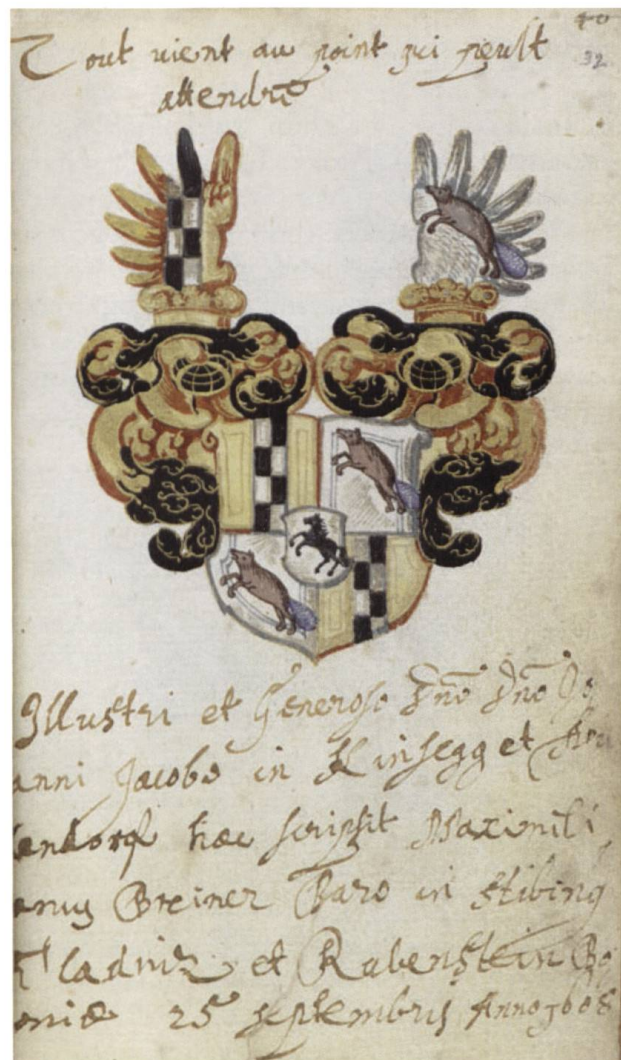 40
32
Tout vient au point qui peult
attendre
Illustri et Generoso Dno Dno Jo
anni Jacobo in Kinsegg et
haec scripsit Maximili
anus Breiner Baro in Stibing
Fladniz et Rabenstein Bo
oniae 25 septembris Anno 1608